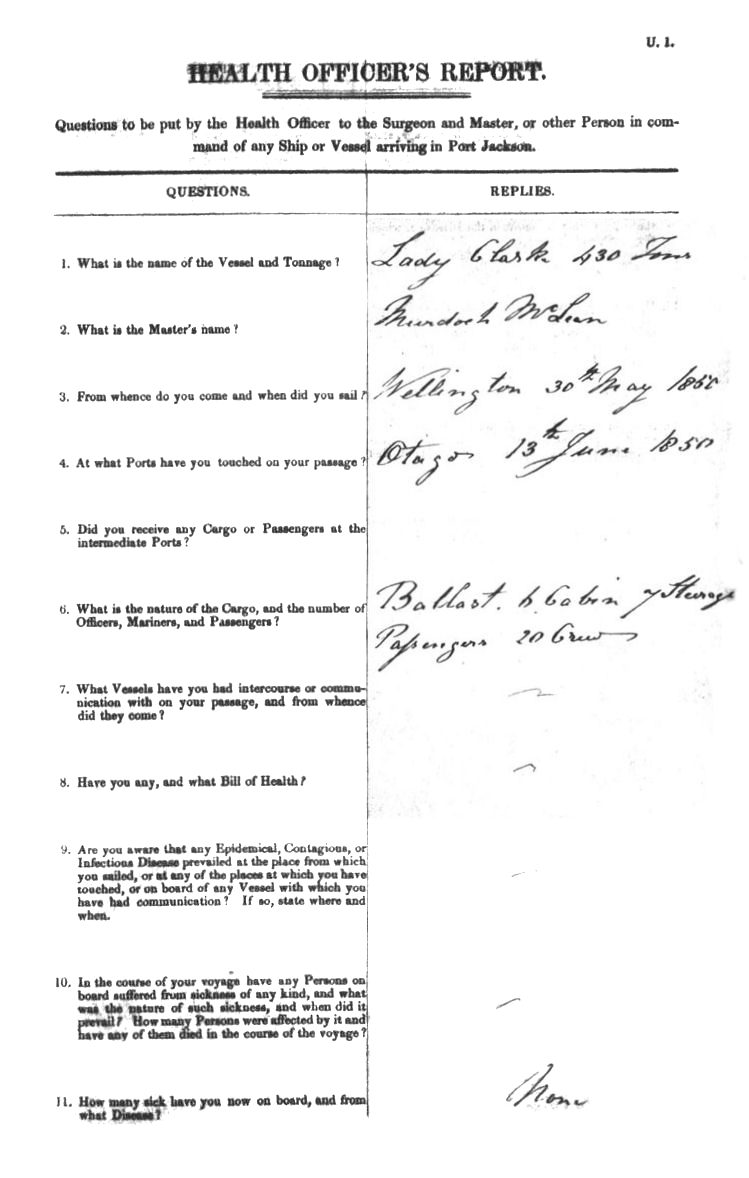 U. 1.
HEALTH OFFICER'S REPORT.
Questions to be put by the Health Officer to the Surgeon and Master, or other Person in com-
mand of any Ship or Vessel arriving in Port Jackson.
QUESTIONS. REPLIES.
1. What is the name of the Vessel and Tonnage ? Lady Clark 430 Tons
2. What is the Master's name ? Murdoch McLean
3. From whence do you come and when did you sail ? Wellington 30th May 1850
4. At what Ports have you touched on your passage ? Otago 13th June 1850
5. Did you receive any Cargo or Passengers at the
intermediate Ports ?
6. What is the nature of the Cargo, and the number of
Officers, Mariners, and Passengers ?
Ballast. 6 Cabin 7 Steerage
Passengers 20 Crew
7. What Vessels have you had intercourse or commu-
nication with on your passage, and from whence
did they come ?
8. Have you any, and what Bill of Health ?
9. Are you aware that any Epidemical, Contagious, or
Infectious Disease prevailed at the place from which
you sailed, or at any of the places at which you have
touched, or on board of any Vessel with which you
have had communication ? If so, state where and
when.
10. In the course of your voyage have any Persons on
board suffered from sickness of any kind, and what
was the nature of such sickness, and when did it
prevail ? How many Persons were affected by it and
have any of them died in the course of the voyage ?
11. How many sick have you now on board, and from
what Disease ?
None